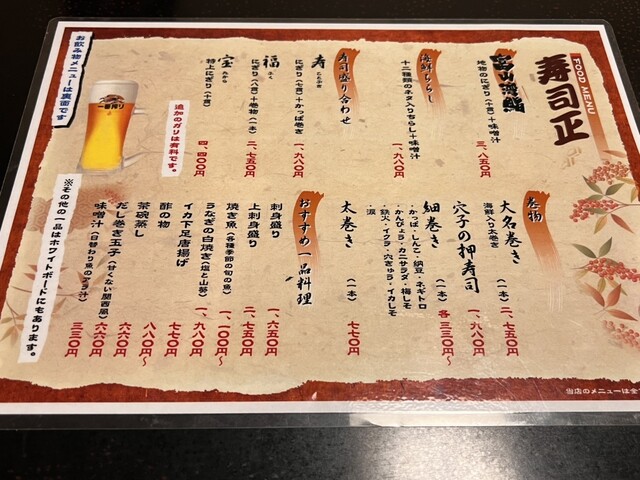 寿司正
FOOD MENU
富山湾鮨
地物のにぎり(十貫)+味噌汁
三、八五〇円
海鮮ちらし
十二種類のネタ入りちらし+味噌汁
一、九八〇円
寿司盛り合わせ
寿 ことぶき
にぎり(七貫)+かっぱ巻き
一、九八〇円
福 ふく
にぎり(八貫)+巻物(一本)
二、七五〇円
宝 たから
特上にぎり(十貫)
四、四〇〇円
追加のガリは有料です。
お飲み物メニューは裏面です
一番搾り
巻物
大名巻き(一本)
海鮮入り太巻き
二、七五〇円
穴子の押寿司
一、九八〇円
細巻き(一本)
各三三〇円〜
・かっぱ・しんこ・納豆・ネギトロ
・かんぴょう・カニサラダ・梅しそ
・鉄火・イクラ・穴きゅう・イカしそ
・涙
太巻き(一本)
七七〇円
おすすめ一品料理
刺身盛り
一、六五〇円
上刺身盛り
二、七五〇円
焼き魚(各種季節の旬の魚)
一、一〇〇円〜
うなぎの白焼き(塩と山葵)
一、九八〇円
イカ下足唐揚げ
七七〇円
酢の物
七七〇円
茶碗蒸し
八八〇円〜
だし巻き玉子(甘くない関西風)
六六〇円
味噌汁(日替わり魚のアラ汁)
三三〇円
※その他の一品はホワイトボードにもあります。
当店のメニューは全